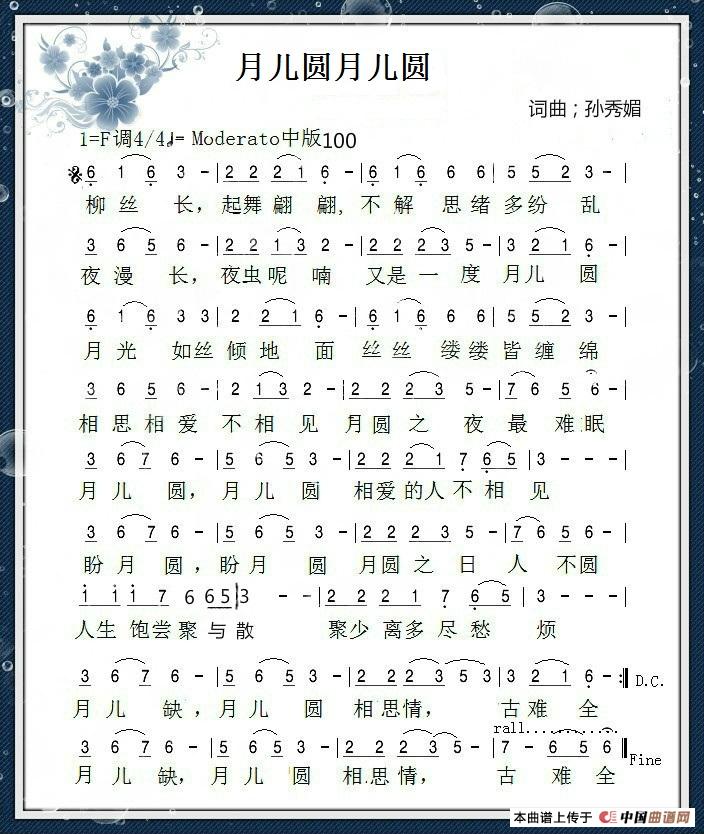 月儿圆月儿圆
词曲；孙秀媚
1=F调4/4♩= Moderato中版100
6 1 6 3 - | 2 2 2 2 1 6 - | 6 1 6 6 6 | 5 5 2 3 - |
柳丝 长，起舞翩 翩, 不解 思绪多纷 乱
3 6 5 6 - | 2 2 1 3 2 - | 2 2 2 3 5 - | 3 2 1 6 - |
夜漫 长，夜虫呢 喃 又是一 度 月儿 圆
6 1 6 3 3 | 2 2 1 6 - | 6 1 6 6 6 | 5 5 2 3 - |
月光 如丝倾地 面 丝丝 缕缕皆缠 绵
3 6 5 6 - | 2 1 3 2 - | 2 2 2 3 5 - | 7 6 5 6 - |
相思相爱 不相见 月圆之 夜最难眠
3 6 7 6 - | 5 6 5 3 - | 2 2 2 2 1 7 6 5 | 3 - - - |
月儿 圆，月儿 圆 相爱的人不相 见
3 6 7 6 - | 5 6 5 3 - | 2 2 2 3 5 - | 7 6 5 6 - |
盼月 圆，盼月 圆 月圆之 日 人 不圆
1 1 1 7 6 6 5 3 - - | 2 2 2 1 7 6 5 | 3 - - - |
人生 饱尝聚与散 聚少离多尽愁 烦
3 6 7 6 - | 5 6 5 3 - | 2 2 2 3 5 3 | 3 2 1 6 - :‖ D.C.
月儿 缺，月儿 圆 相思情， 古难 全
rall..............
3 6 7 6 - | 5 6 5 3 - | 2 2 2 3 5 - | 7 - 6 5 6 ‖ Fine
月儿 缺，月儿 圆 相思情， 古 难全
本曲谱上传于 中国曲谱网